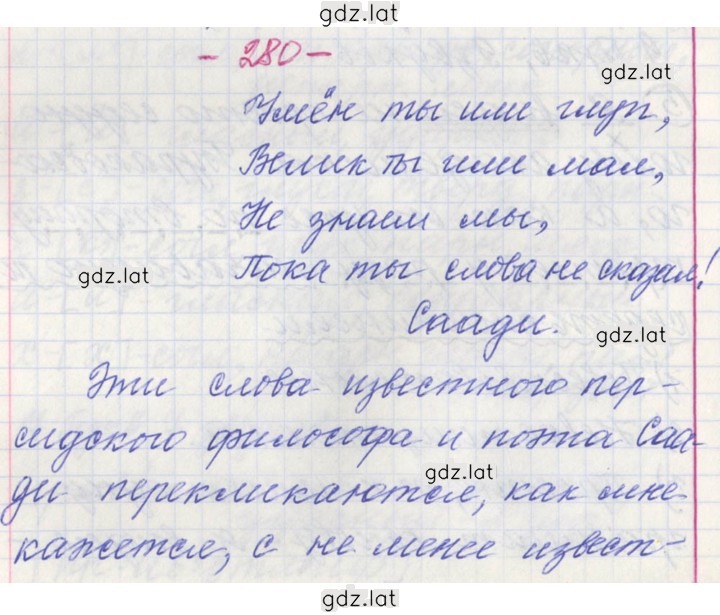 gdz.lat
- 280 -
gdz.lat
Умён ты или глуп,
Велик ты или мал,
Не знаем мы,
Пока ты слова не сказал!
gdz.lat
Саади.
gdz.lat
Эти слова известного пер-
сидского философа и поэта Саа-
gdz.lat
ди перекликаются, как мне
кажется, с не менее извест-
gdz.lat